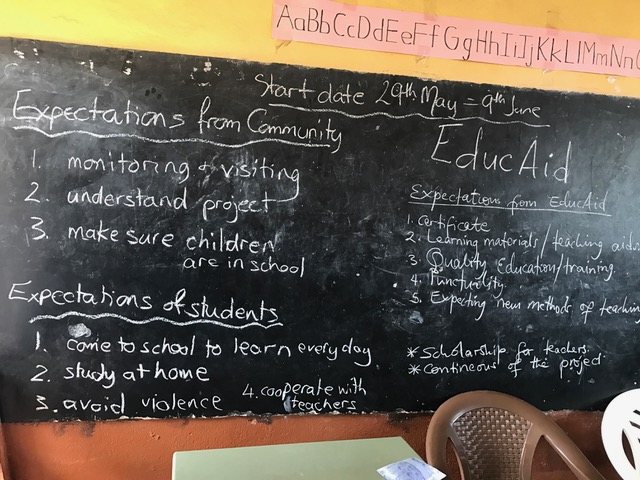 AaBbCcDdEeFfGgHhIiJjKkLlMmNn
Start date 29th May = 9th June
Expectations from Community
1. monitoring & visiting
2. understand project
3. make sure children
are in school
Expectations of students
1. come to school to learn every day
2. study at home
3. avoid violence
4. cooperate with
teachers
EducAid
Expectations from EducAid
1. Certificate
2. Learning materials/teaching aids
3. Quality Education/training
4. Punctuality
5. Expecting new methods of teaching
* Scholarship for teachers.
* Contineous of the project